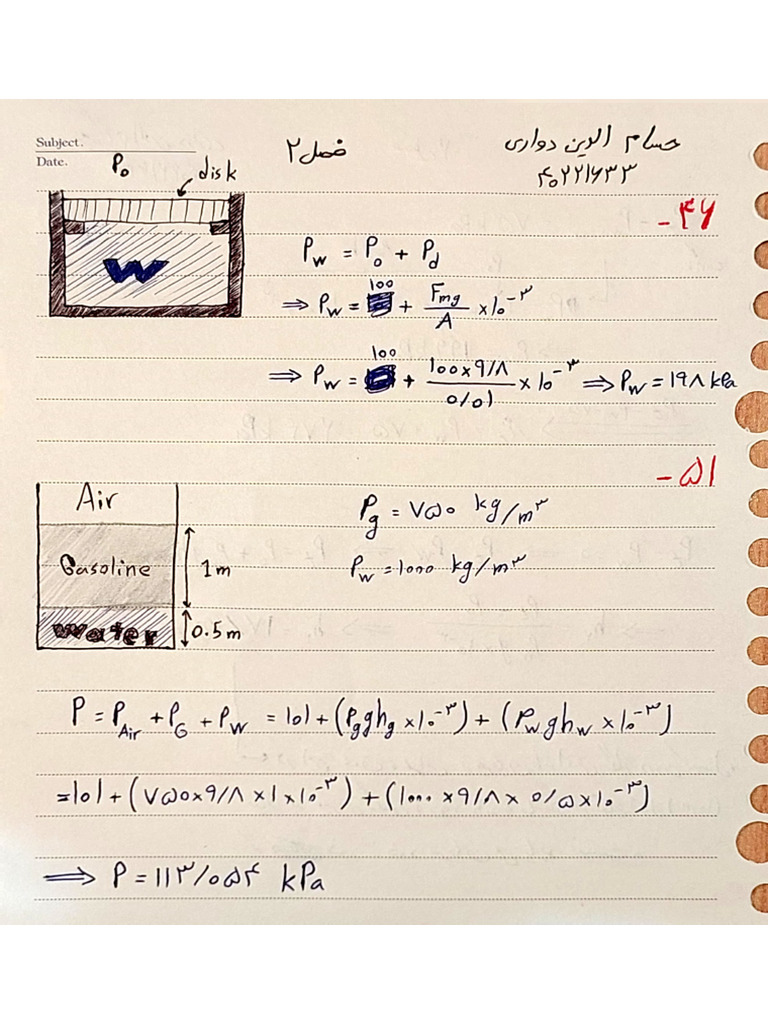 Subject.
Date.
فصل ۲
حسام الدین دواری
۴۰۲۲۱۶۳۳
P₀
disk
W
-۴۶
P_w = P₀ + P_d
⇒ P_w = 100 + F_mg / A × ۱۰^-۳
⇒ P_w = 100 + ۱۰۰×۹/۸ / ۰/۰۱ × ۱۰^-۳ ⇒ P_w = ۱۹۸ kPa
-۵۱
Air
Gasoline
1m
Water
0.5m
ρ_g = ۷۵۰ kg/m^۳
ρ_w = ۱۰۰۰ kg/m^۳
P = P_Air + P_G + P_W = ۱۰۱ + (ρ_g g h_g × ۱۰^-۳) + (ρ_w g h_w × ۱۰^-۳)
= ۱۰۱ + (۷۵۰×۹/۸ × ۱ × ۱۰^-۳) + (۱۰۰۰ × ۹/۸ × ۰/۵ × ۱۰^-۳)
⇒ P = ۱۱۳/۰۵۴ kPa